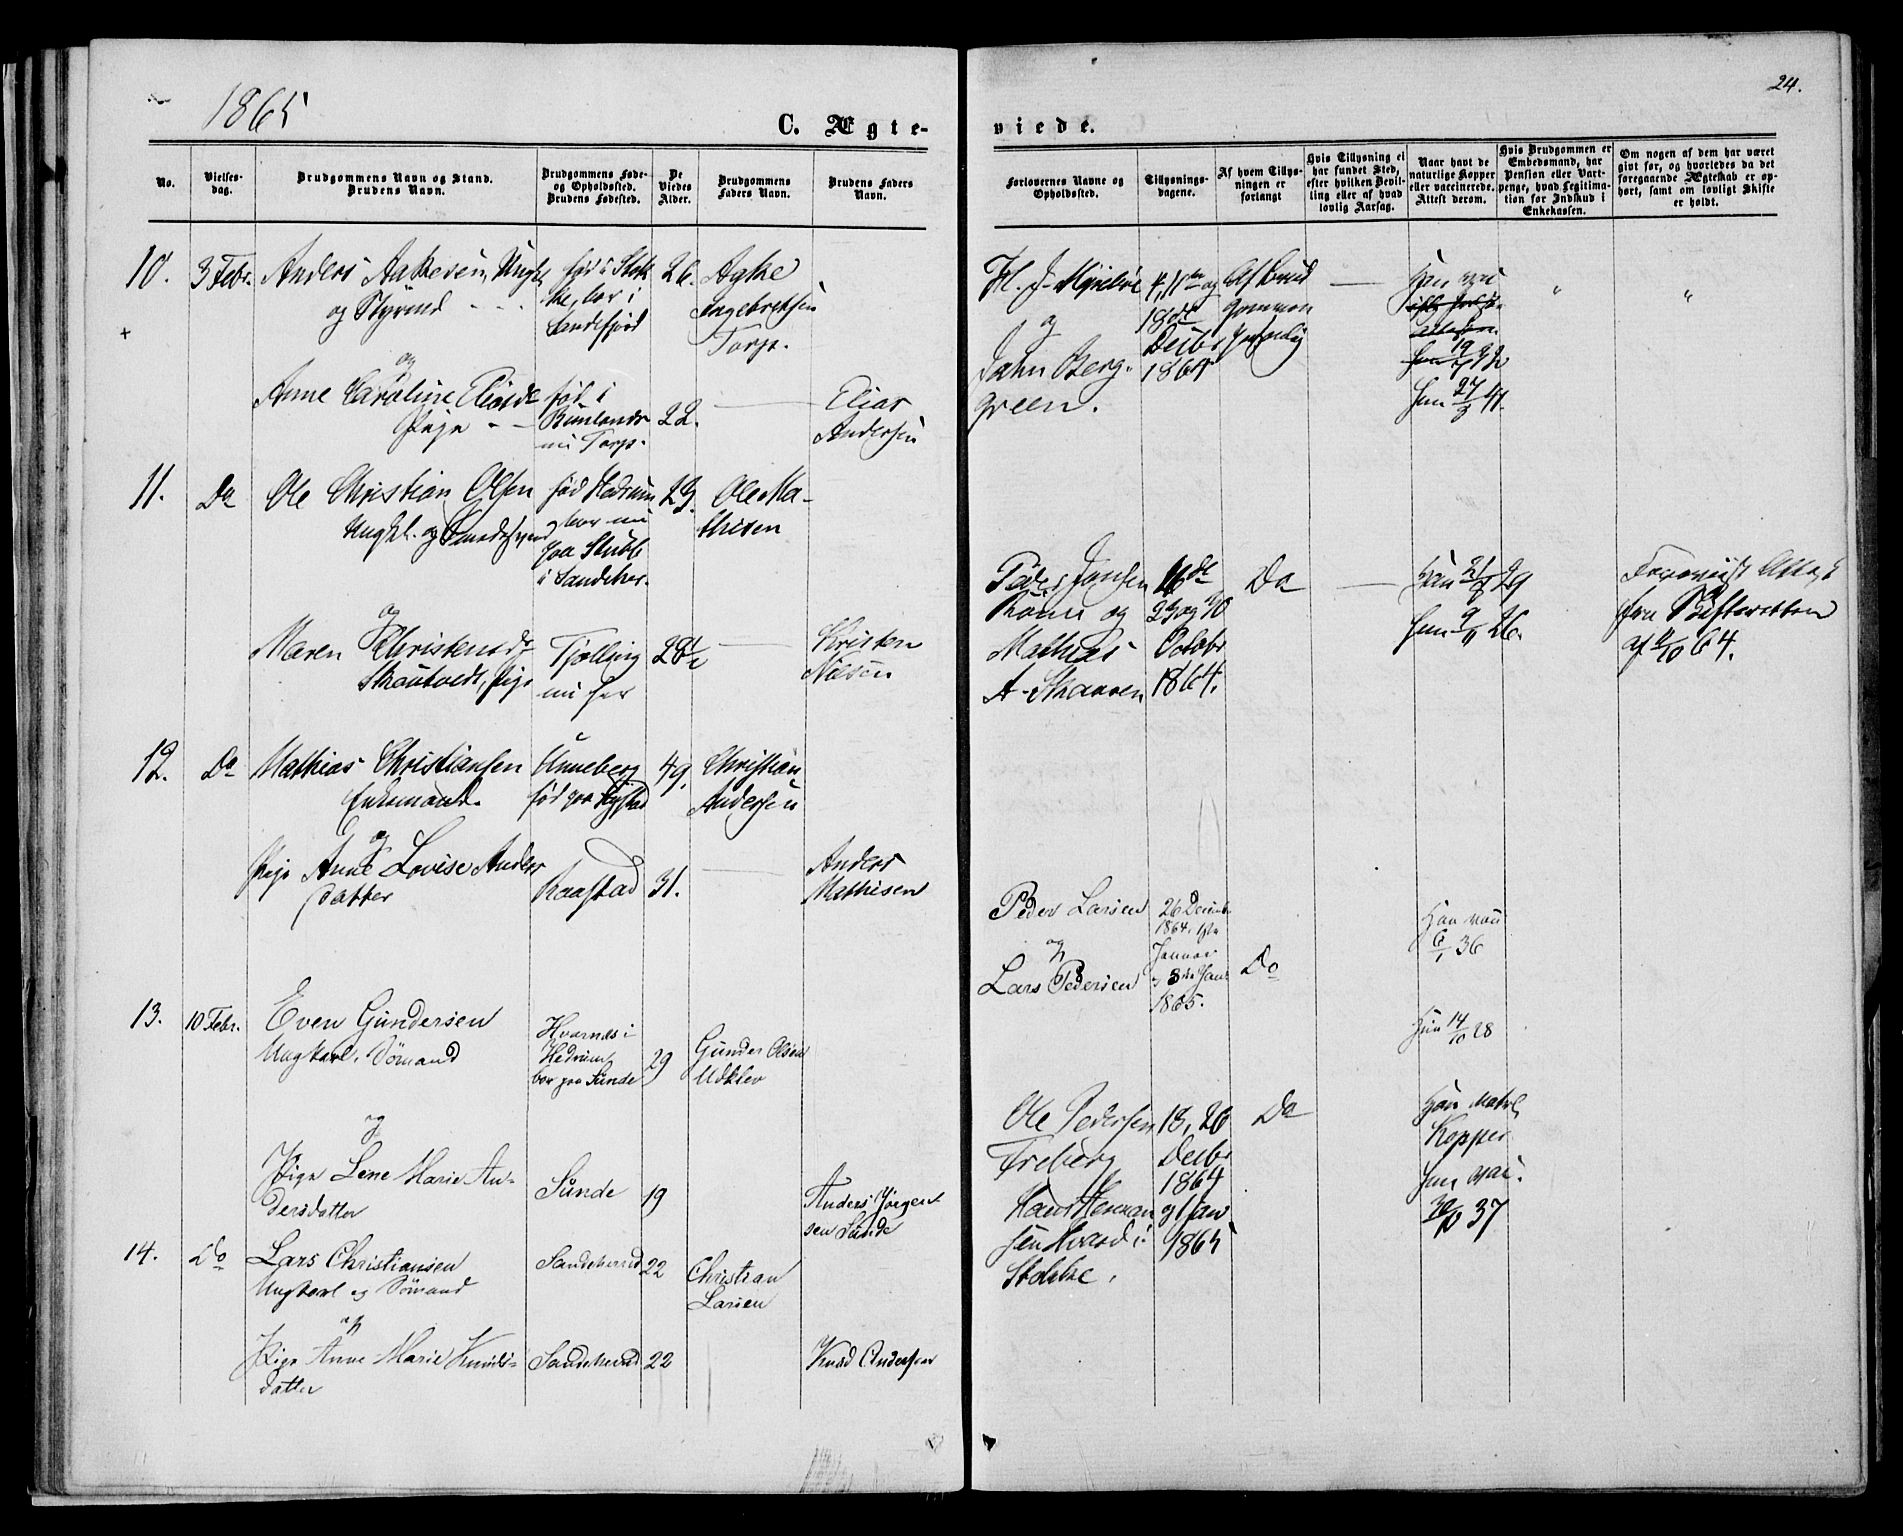 1865
24.
C. Ægte-
viede.
No.
Vielses-
dag.
Brudgommens Navn og Stand.
Brudens Navn.
Brudgommens Føde-
og Opholdssted.
Brudens Fødested.
De
Viedes
Alder.
Brudgommens
Faders Navn.
Brudens Faders
Navn.
Forlovernes Navne og
Opholdssted.
Tillysnings-
dagene.
Af hvem Tillys-
ningen er
forlangt
Hvis Tillysning ei
har fundet Sted,
efter hvilken Bevil-
ling eller af hvad
lovlig Aarsag.
Naar havt de
naturlige Kopper
eller vaccinerede.
Attest derom.
Hvis Brudgommen er
Embedsmand, har
Pension eller Vart-
penge, hvad Legitima-
tion for Indskud i
Enkekassen.
Om nogen af dem har været
gift før, og hvorledes da det
foregaaende Ægteskab er op-
hørt, samt om lovligt Skifte
er holdt.
10.
3 Febr.
Anders Aakesen, Ungk.
og Styrmd
og
Anne Caroline Eliasd.
Pige
født i Stok-
ke, bor i
Sandefjord
26.
Aake
Ingebretsen
Torp.
født i
nu Torp.
22.
Elias
Andersen
og
John Berg-
green.
4, 11te og
18de
Decbr
1864
Af Brud
gommen
Han
Hun 27/9 41.
11.
Do
Ole Christian Olsen
Ungkl. og
og
Maren Christensd.
født Hedrum
bor nu
paa
i Sandeher.
29.
Ole Ma-
thisen
Tjølling
nu her
28 1/2
Kristen
Nilsen
Peder Jansen
og
Mathias
A.
23 og 30
October
1864.
Do
Han
29
Hun 26.
Attest
fra Skifteretten
64.
12.
Do
Mathias Christiansen
Enkemand.
og
Pige Anne Lovise Anders
datter
Unneberg
født paa
49.
Christian
Andersen
Raastad
31.
Anders
Mathisen
Peder Larsen
og
Lars Pedersen
26 Decemb.
1864, 1ste
Januar
og 8de Jan.
1865.
Do
Han vac
6/1 36
Hun 14/10 28
13.
10 Febr.
Even Gundersen
Ungkarl, Sømand
og
Pige Lene Marie An-
dersdatter
Hvarnes i
Hedrum,
bor paa Sunde
29
Gunder Olsen
Udklev
Sunde
19
Anders Jørgen-
sen Sunde
Ole Pedersen
Freberg
Hans Herman
sen
Stokke.
18, 26
Decbr
1864
og 1 Jan
1865
Do
Han naturl.
Kopper
Hun vac.
37
14.
Do
Lars Christiansen
Ungkarl og Sømand
og
Pige Anne Marie Knuds-
datter
Sandeherred
22
Christian
Larsen
Sandeherred
22
Knud Andersen